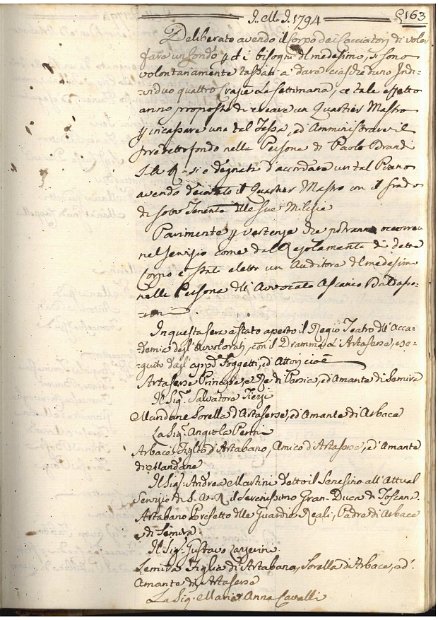 I. M. I. 1794
163
Deliberato avendo il Corpo dei Cacciatori di
un fondo p di bisogni del medesimo, si sono
volontariamente tassati a dare ciascheduno Indi=
viduo quattro rase la Settimana, a tale effetto
anno proposto di creare un Quartier Mastro
p incassare una tal Tassa, ed Amministrare il
prodotto fondo nella Persona di Paolo
S. A. R. si è degnata d'accordare un tal Piano
avendo il Quartier Mastro con il grado
di sotto Tenente delle sue Milizie
Parimente p vertenze che potranno occorrere
nel servizio come dal Regolamento di detto
Corpo è stato eletto un Auditore del medesimo
nella Persona dell' Avvocato Ascanio
In questa sera è stato aperto il Regio Teatro dell' Acca=
demia degl' Avvalorati, con il Dramma di Artaserse, ese=
guito dagl' app. Soggetti, ed Attori, cioè
Artaserse Principe, e Rè di Persia, ed Amante di Semira
Il Sig. Salvatore
Mandane Sorella d'Artaserse, ed Amante di Arbace
La Sig. Angiola Perini
Arbace, Figlio d'Artabano, Amico d'Artaserse, ed Amante
di Mandane
Il Sig. Andrea Martini detto il Senesino all' Attual
Servizio di S. A. R. il Serenissimo Gran Duca di Toscana
Artabano Prefetto delle Guardie Reali, Padre di Arbace
e di Semira
Il Sig. Gustavo Lazzerini
Semira Figlia di Artabano, Sorella di Arbace, ed
Amante di Artaserse
La Sig. Maria Anna Cavelli